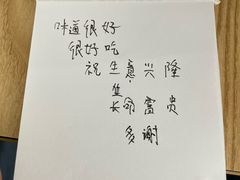 味道很好
很好吃
祝生意兴隆
生
长命富贵
多谢